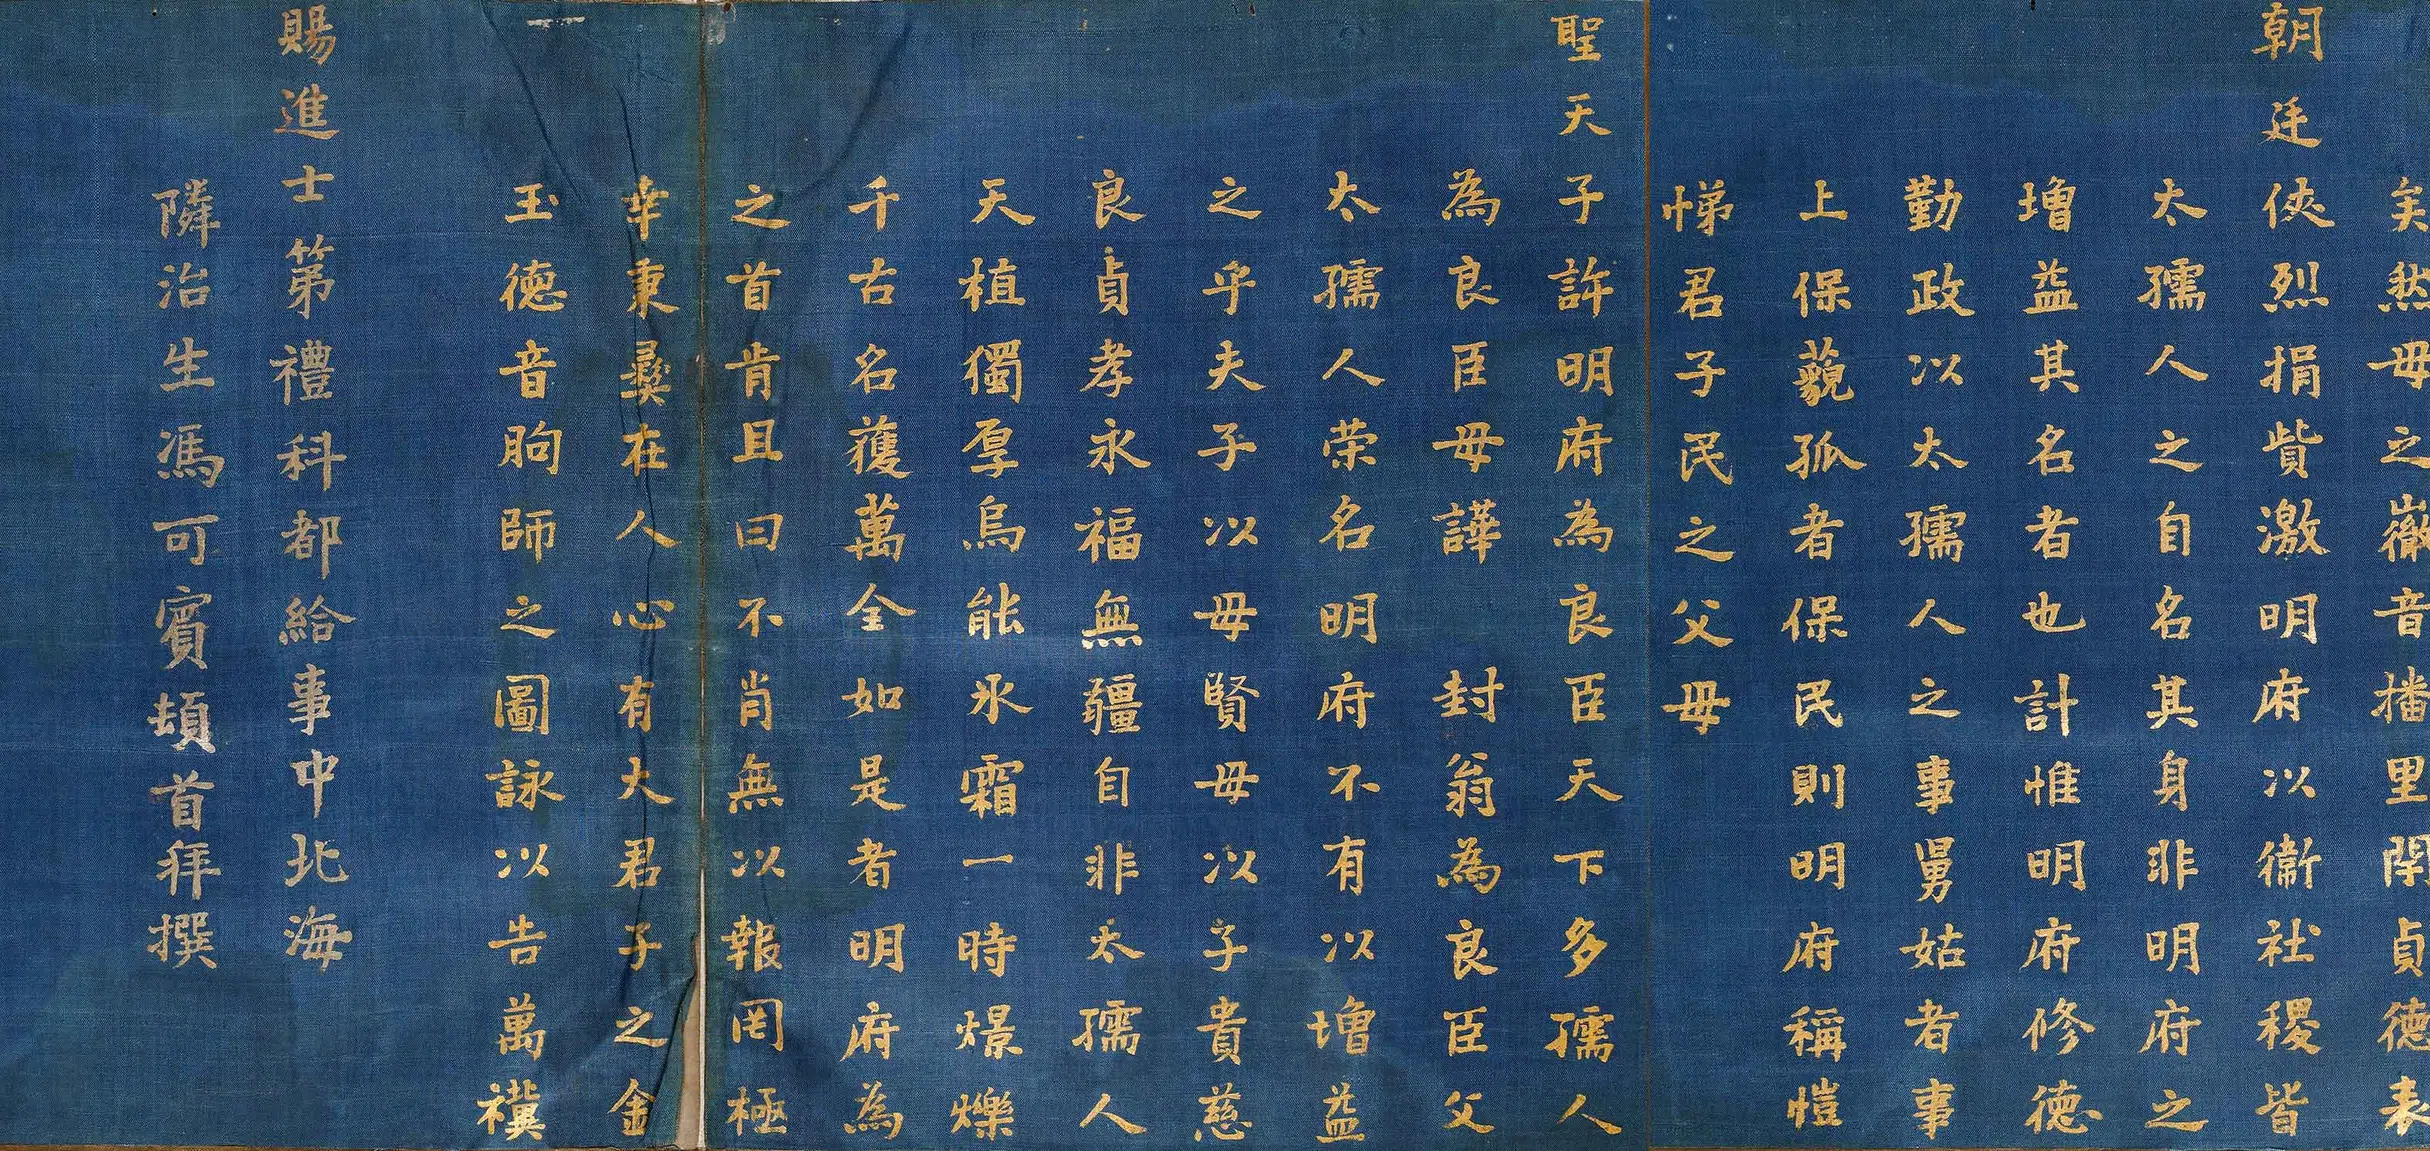 矣然母之徽音播里閈貞德表
朝廷俠烈捐貲激明府以衞社稷皆
太孺人之自名其身非明府之
增益其名者也計惟明府修德
勤政以太孺人之事舅姑者事
上保藐孤者保民則明府稱愷
悌君子民之父母
聖天子許明府為良臣天下多孺人
為良臣母譁封翁為良臣父
太孺人荣名明府不有以增益
之乎夫子以母賢母以子貴慈
良貞孝永福無疆自非太孺人
天植獨厚烏能氷霜一時燝爍
千古名獲萬全如是者明府為
之首肯且曰不肖無以報罔極
幸秉彝在人心有大君子之金
玉德音朐師之圖詠以告萬禩
賜進士第禮科都給事中北海
隣治生馮可賓頓首拜撰